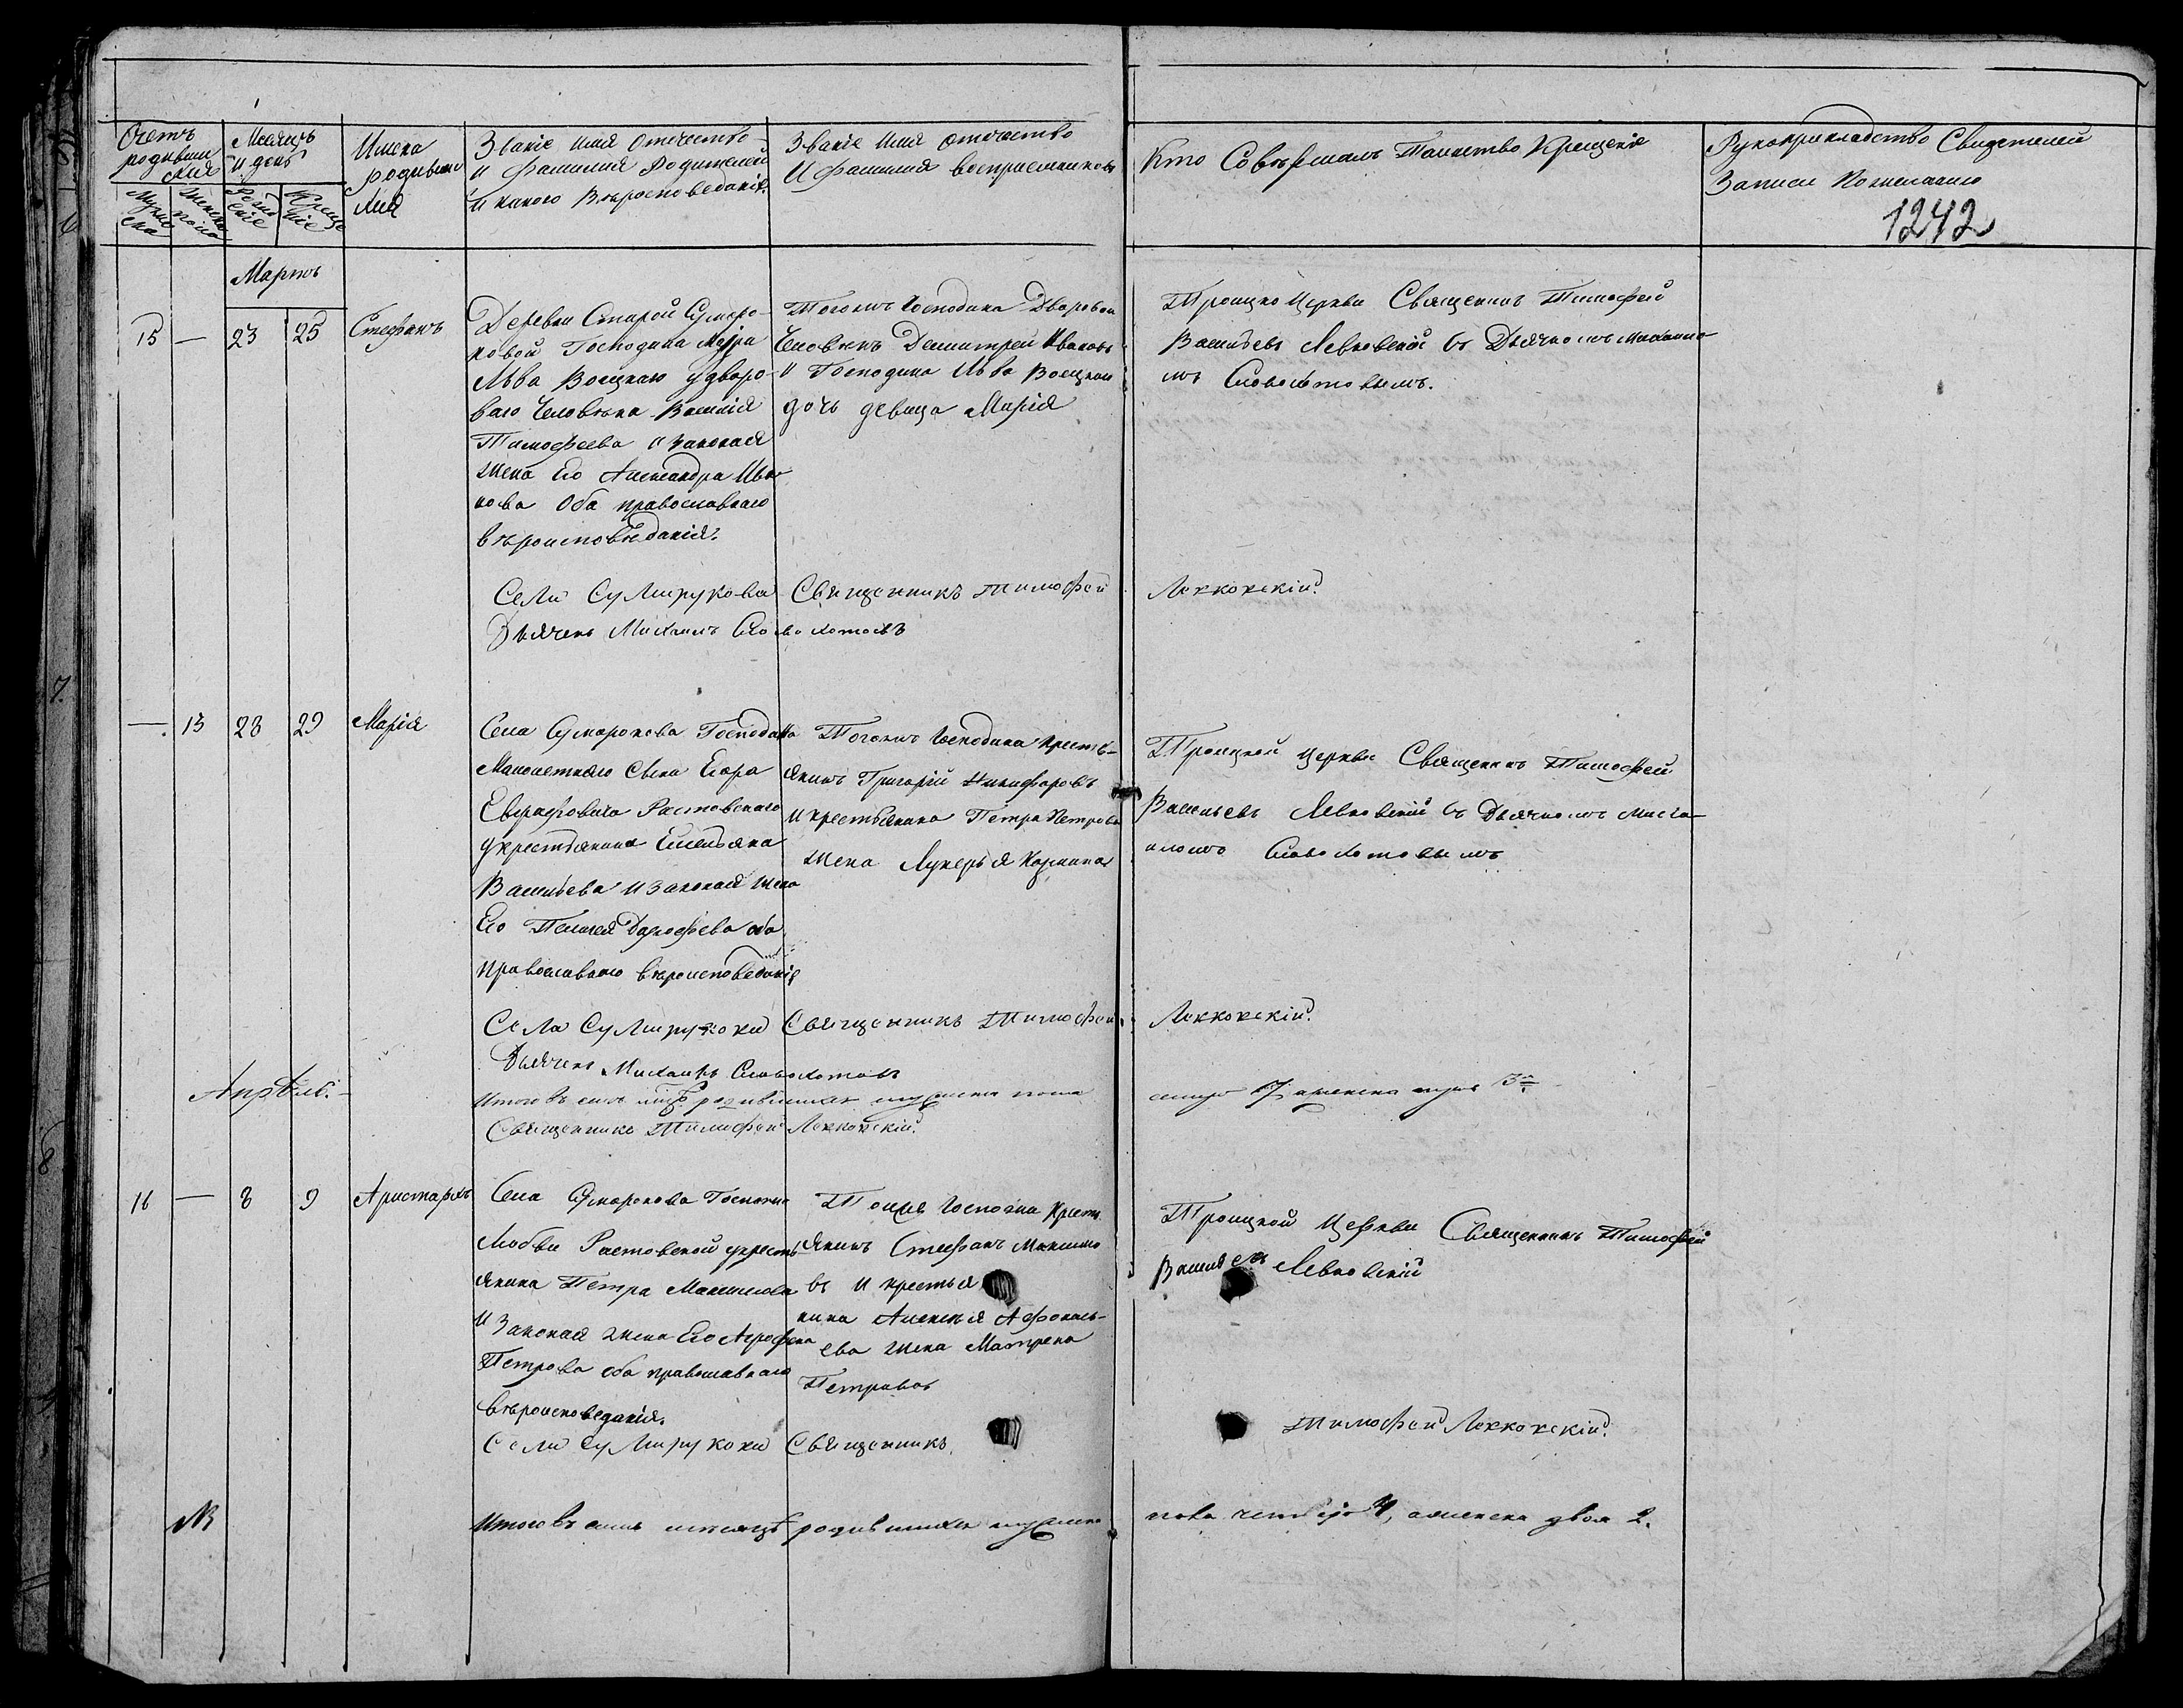 Счетъ родившихся
Мужеска
Женска пола
Месяцъ и день
Рожденіе
Крещеніе
Имена родившихся
Званіе имя Отечество
и фамилия Родителей
и какого Вѣроисповеданія.
Званіе Имя Отечество
И фамилия восприемниковъ
Кто Совершалъ Таинство Крещенія
Рукоприкладство Свидетелей
Записи По желанию
1242
Мартъ
15 — 23 25 Стефанъ
Деревни Старой Сумаро-
ковой Господина
Льва Воецкаго у дворо-
ваго Человѣка Василія
Тимофеева и законая
жена Его Александра Ива
нова Оба православнаго
вѣроисповѣданія.
Тогожъ Господина Дворовои
Человѣкъ Димитрей Ивановъ
и Господина Льва Воецкаго
дочь девица Марія
Троицко Церкви Священикъ Тимофей
Васильевъ Левковскій съ Дьячкомъ Михаило
мъ Словохотовымъ.
Села Сумарукова Священникъ Тимофей Левковскій
Дьячекъ Михаилъ Словохотовъ
— 13 28 29 Марія
Села Сумарокова Господина
Малолетняго Сына Егора
Евграфовича Растовскаго
у крестьянина Емельяна
Васильева и законая жена
Его Пелагея Дорофеева оба
православнаго вѣроисповеданія
Тогожъ Господина Кресть-
янинъ Григорій Никифоровъ
и крестьянина Петра Петрова
жена Лукерья
Троицкой Церкви Священикъ Тимофей
Васильевъ Левковскій съ Дьячкомъ Миха
иломъ Словохотовымъ
Села Сумарукова Священникъ Тимофей Левковскій
Дьячекъ Михаилъ Словохотовъ
Апрѣль.
Итого въ семъ родившихся мужеска пола 7, а женска 3
Священникъ Тимофей Левковскій
16 — 8 9 Аристархъ
Села Сумарокова Госпожи
Любви Растовской у кресть
янина Петра Максимова
И Законая жена Его Агрофена
Петрова оба православнаго
вѣроисповеданія.
Тойже Госпожи Кресть
янинъ Стефанъ Максимо
въ и крестья
нина Алексея Афонась-
ева жена Матрена
Петрова
Троицкой Церкви Священникъ Тимофей
Васильевъ Левковскій
Села Сумарукова Священникъ Тимофей Левковскій
Итого въ семъ месяцѣ родившихся мужеска пола четверо 4, а женска двое 2.